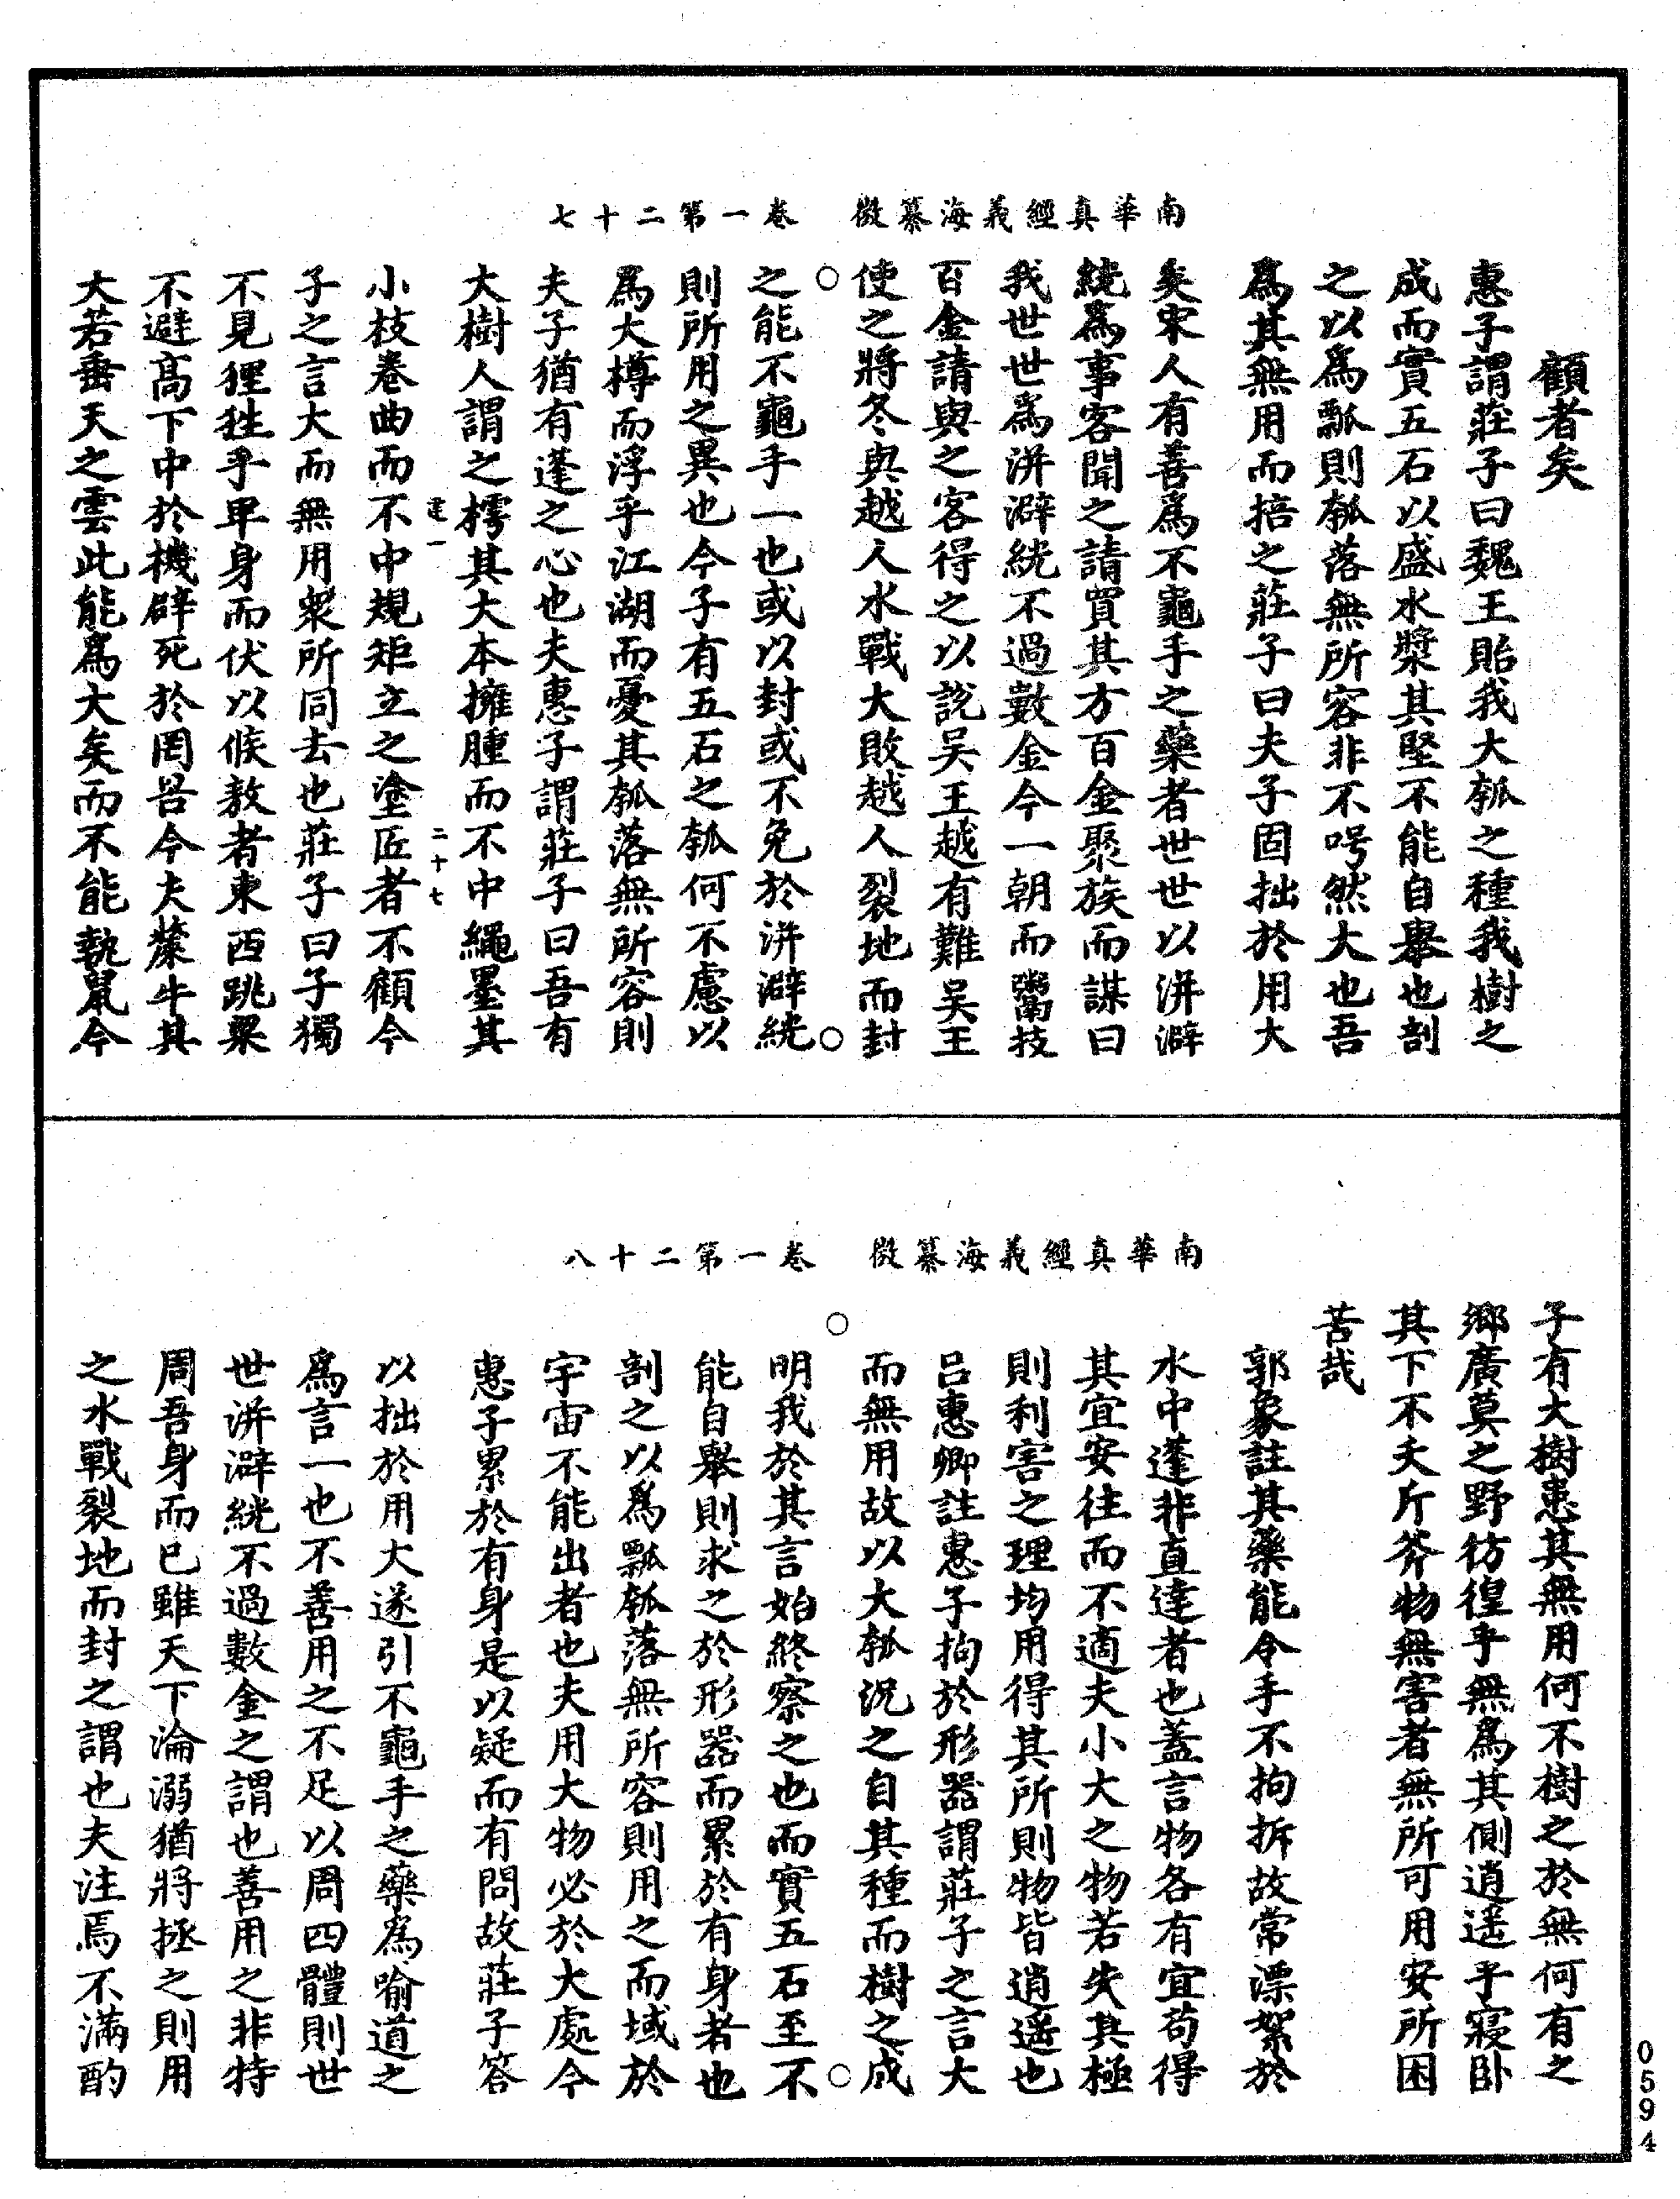 南華真經義海纂微　卷一第二十七
顧者矣
惠子謂莊子曰魏王貽我大瓠之種我樹之
成而實五石以盛水漿其堅不能自舉也剖
之以爲瓢則瓠落無所容非不呺然大也吾
爲其無用而掊之莊子曰夫子固拙於用大
矣宋人有善爲不龜手之藥者世世以洴澼
絖爲事客聞之請買其方百金聚族而謀曰
我世世爲洴澼絖不過數金今一朝而鬻技
百金請與之客得之以說吳王越有難吳王
使之將冬與越人水戰大敗越人裂地而封
之能不龜手一也或以封或不免於洴澼絖
則所用之異也今子有五石之瓠何不慮以
爲大樽而浮乎江湖而憂其瓠落無所容則
夫子猶有蓬之心也夫惠子謂莊子曰吾有
大樹人謂之樗其大本擁腫而不中繩墨其
建一　二十七
小枝卷曲而不中規矩立之塗匠者不顧今
子之言大而無用衆所同去也莊子曰子獨
不見狸狌乎卑身而伏以候敖者東西跳梁
不避高下中於機辟死於罔罟今夫斄牛其
大若垂天之雲此能爲大矣而不能執鼠今
南華真經義海纂微　卷一第二十八
子有大樹患其無用何不樹之於無何有之
鄉廣莫之野彷徨乎無爲其側逍遥乎寢卧
其下不夭斤斧物無害者無所可用安所困
苦哉
郭象註其藥能令手不拘拆故常漂絮於
水中蓬非直達者也蓋言物各有宜苟得
其宜安往而不適夫小大之物若失其極
則利害之理均用得其所則物皆逍遥也
吕惠卿註惠子拘於形器謂莊子之言大
而無用故以大瓠況之自其種而樹之成
明我於其言始終察之也而實五石至不
能自舉則求之於形器而累於有身者也
剖之以爲瓢瓠落無所容則用之而域於
宇宙不能出者也夫用大物必於大處今
惠子累於有身是以疑而有問故莊子答
以拙於用大遂引不龜手之藥爲喻道之
爲言一也不善用之不足以周四體則世
世洴澼絖不過數金之謂也善用之非特
周吾身而已雖天下淪溺猶將拯之則用
之水戰裂地而封之謂也夫注焉不滿酌
0594